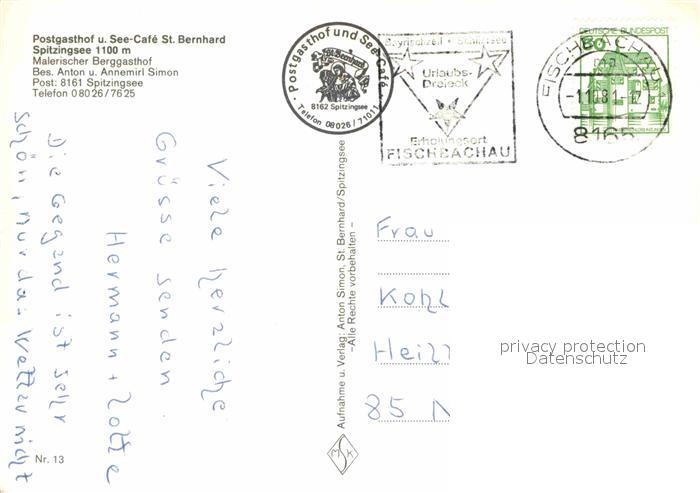 Postgasthof u. See-Café St. Bernhard
Spitzingsee 1100 m
Malerischer Berggasthof
Bes. Anton u. Annemirl Simon
Post: 8161 Spitzingsee
Telefon 08026/7625
Postgasthof und See-Café
St. Bernhard
8162 Spitzingsee
Telefon 08026/7101
Bayrischzell • Schliersee
Urlaubs-
Dreieck
Erholungsort
FISCHBACHAU
FISCHBACHAU
-1.10.81-17
8165
DEUTSCHE BUNDESPOST
Viele herzliche
Grüsse senden
Hermann + Lotte
Die Gegend ist sehr
schön, nur das Wetter nicht
Aufnahme u. Verlag: Anton Simon, St. Bernhard/Spitzingsee
–Alle Rechte vorbehalten –
Frau
Kohl
Heizl
85 N
privacy protection
Datenschutz
MSK
Nr. 13